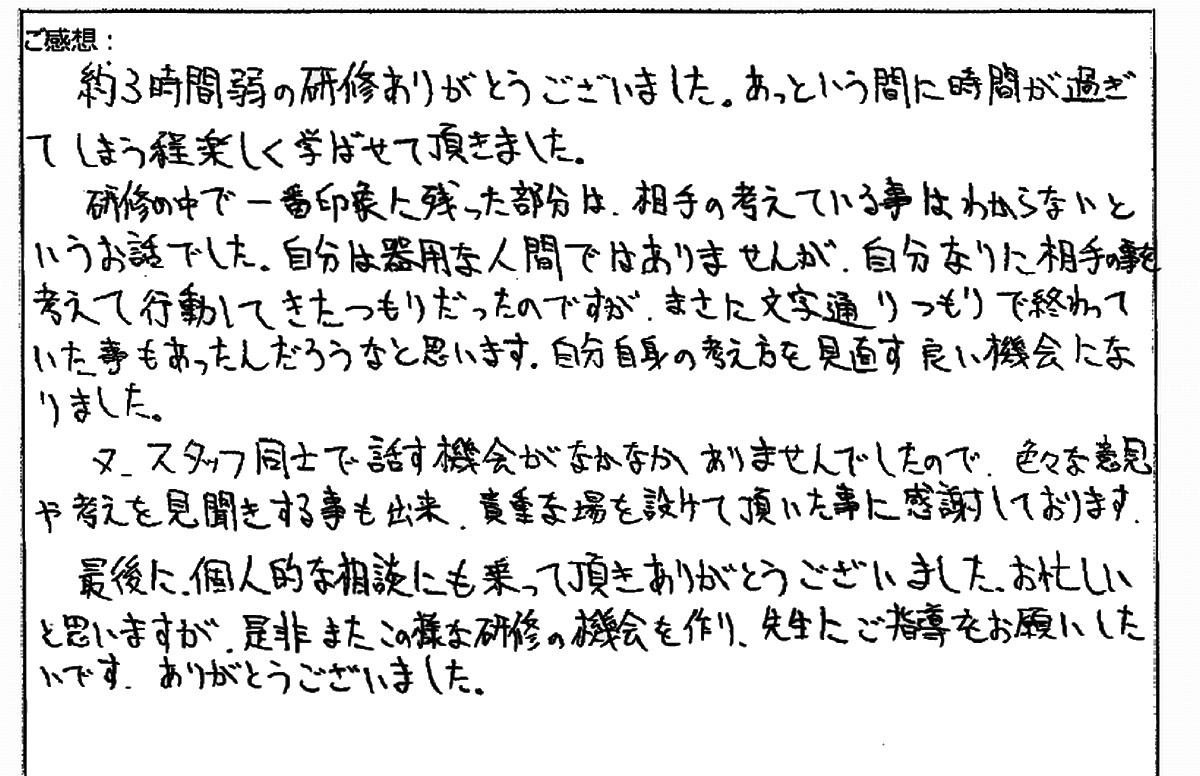 ご感想：
約3時間弱の研修ありがとうございました。あっという間に時間が過ぎ
てしまう程楽しく学ばせて頂きました。
研修の中で一番印象に残った部分は、相手の考えている事はわからないと
いうお話でした。自分は器用な人間ではありませんが、自分なりに相手の事を
考えて行動してきたつもりだったのですが、まさに文字通りつもりで終わって
いた事もあったんだろうなと思います。自分自身の考え方を見直す良い機会にな
りました。
又、スタッフ同士で話す機会がなかなかありませんでしたので、色々な意見
や考えを見聞きする事も出来、貴重な場を設けて頂いた事に感謝しております。
最後に、個人的な相談にも乗って頂きありがとうございました、お忙しい
と思いますが、是非またこの様な研修の機会を作り、先生にご指導をお願いした
いです。ありがとうございました。